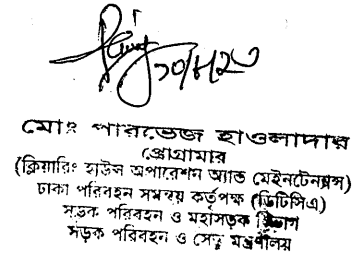 ১০/৮/২৩
মোঃ পারভেজ হাওলাদার
প্রোগ্রামার
(ক্লিয়ারিং হাউস অপারেশন অ্যান্ড মেইনটেনেন্স)
ঢাকা পরিবহন সমন্বয় কর্তৃপক্ষ (ডিটিসিএ)
সড়ক পরিবহন ও মহাসড়ক বিভাগ
সড়ক পরিবহন ও সেতু মন্ত্রণালয়